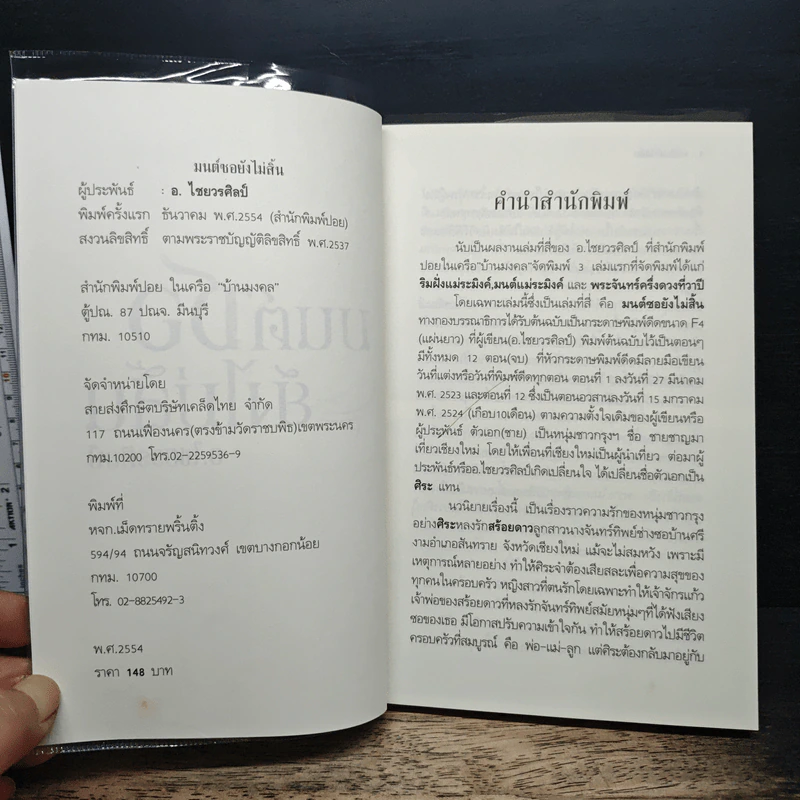 มนต์ซอยังไม่สิ้น
ผู้ประพันธ์ : อ. ไชยวรศิลป์
พิมพ์ครั้งแรก ธันวาคม พ.ศ.2554 (สำนักพิมพ์ปอย)
สงวนลิขสิทธิ์ ตามพระราชบัญญัติลิขสิทธิ์ พ.ศ.2537
สำนักพิมพ์ปอย ในเครือ "บ้านมงคล"
ตู้ปณ. 87 ปณจ. มีนบุรี
กทม. 10510
จัดจำหน่ายโดย
สายส่งศึกษิตบริษัทเคล็ดไทย จำกัด
117 ถนนเฟื่องนคร(ตรงข้ามวัดราชบพิธ)เขตพระนคร
กทม.10200 โทร.02-2259536-9
พิมพ์ที่
หจก.เม็ดทรายพริ้นติ้ง
594/94 ถนนจรัญสนิทวงศ์ เขตบางกอกน้อย
กทม. 10700
โทร. 02-8825492-3
พ.ศ.2554
ราคา 148 บาท
คำนำสำนักพิมพ์
นับเป็นผลงานเล่มที่สี่ของ อ.ไชยวรศิลป์ ที่สำนักพิมพ์
ปอยในเครือ"บ้านมงคล"จัดพิมพ์ 3 เล่มแรกที่จัดพิมพ์ได้แก่
ริมฝั่งแม่ระมิงค์,มนต์แม่ระมิงค์ และ พระจันทร์ครึ่งดวงที่วาปี
โดยเฉพาะเล่มนี้ซึ่งเป็นเล่มที่สี่ คือ มนต์ซอยังไม่สิ้น
ทางกองบรรณาธิการได้รับต้นฉบับเป็นกระดาษพิมพ์ดีดขนาด F4
(แผ่นยาว) ที่ผู้เขียน(อ.ไชยวรศิลป์) พิมพ์ต้นฉบับไว้เป็นตอนๆ
มีทั้งหมด 12 ตอน(จบ) ที่หัวกระดาษพิมพ์ดีดมีลายมือเขียน
วันที่แต่งหรือวันที่พิมพ์ดีดทุกตอน ตอนที่ 1 ลงวันที่ 27 มีนาคม
พ.ศ. 2523 และตอนที่ 12 ซึ่งเป็นตอนอวสานลงวันที่ 15 มกราคม
พ.ศ. 2524 (เกือบ10เดือน) ตามความตั้งใจเดิมของผู้เขียนหรือ
ผู้ประพันธ์ ตัวเอก(ชาย) เป็นหนุ่มชาวกรุงฯ ชื่อ ชายชาญมา
เที่ยวเชียงใหม่ โดยให้เพื่อนที่เชียงใหม่เป็นผู้นำเที่ยว ต่อมาผู้
ประพันธ์หรืออ.ไชยวรศิลป์เกิดเปลี่ยนใจ ได้เปลี่ยนชื่อตัวเอกเป็น
ศิระ แทน
นวนิยายเรื่องนี้ เป็นเรื่องราวความรักของหนุ่มชาวกรุง
อย่างศิระหลงรักสร้อยดาวลูกสาวนางจันทร์ทิพย์ช่างซอบ้านศรี
งามอำเภอสันทราย จังหวัดเชียงใหม่ แม้จะไม่สมหวัง เพราะมี
เหตุการณ์หลายอย่าง ทำให้ศิระจำต้องเสียสละเพื่อความสุขของ
ทุกคนในครอบครัว หญิงสาวที่ตนรักโดยเฉพาะทำให้เจ้าจักรแก้ว
เจ้าพ่อของสร้อยดาวที่หลงรักจันทร์ทิพย์สมัยหนุ่มๆที่ได้ฟังเสียง
ซอของเธอ มีโอกาสปรับความเข้าใจกัน ทำให้สร้อยดาวไปมีชีวิต
ครอบครัวที่สมบูรณ์ คือ พ่อ-แม่-ลูก แต่ศิระต้องกลับมาอยู่กับ